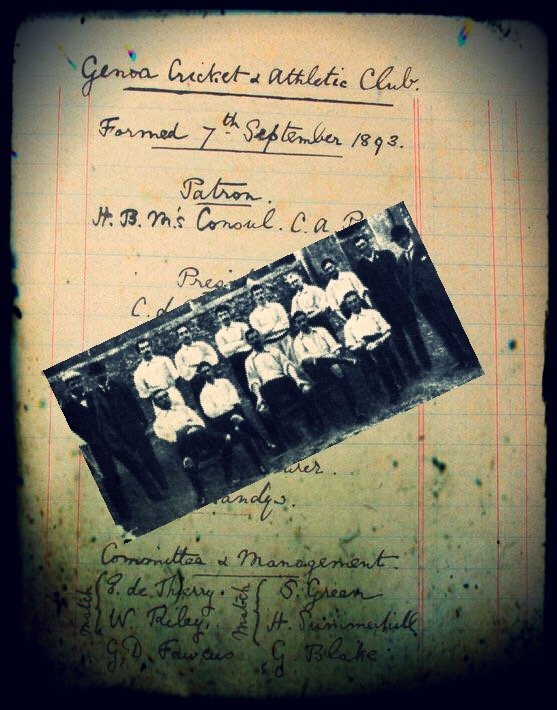 Genoa Cricket & Athletic Club.
Formed 7th September 1893.
Patron.
H. B. M's Consul. C. A.
Pres
C. d
urer.
andys.
Committee & Management.
Match E. de Thierry. Match S. Green
W. Riley. H. Summerhill
G. D. Fawcus G. Blake